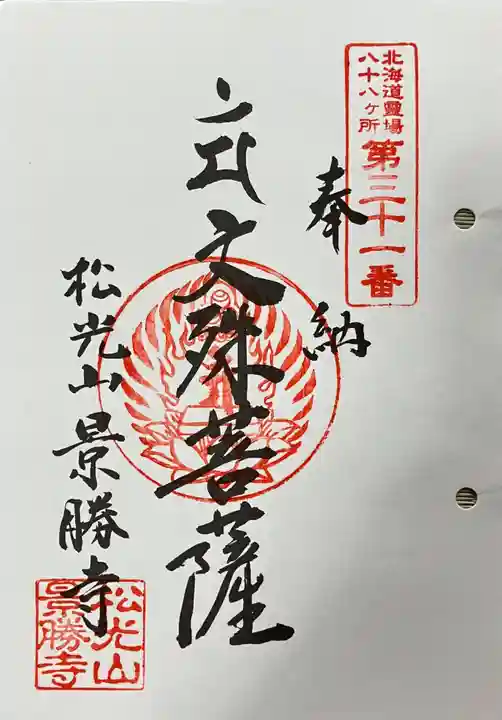 北海道靈場
八十八ヶ所
第三十一番
奉納
文殊菩薩
松光山景勝寺
松光山
景勝寺